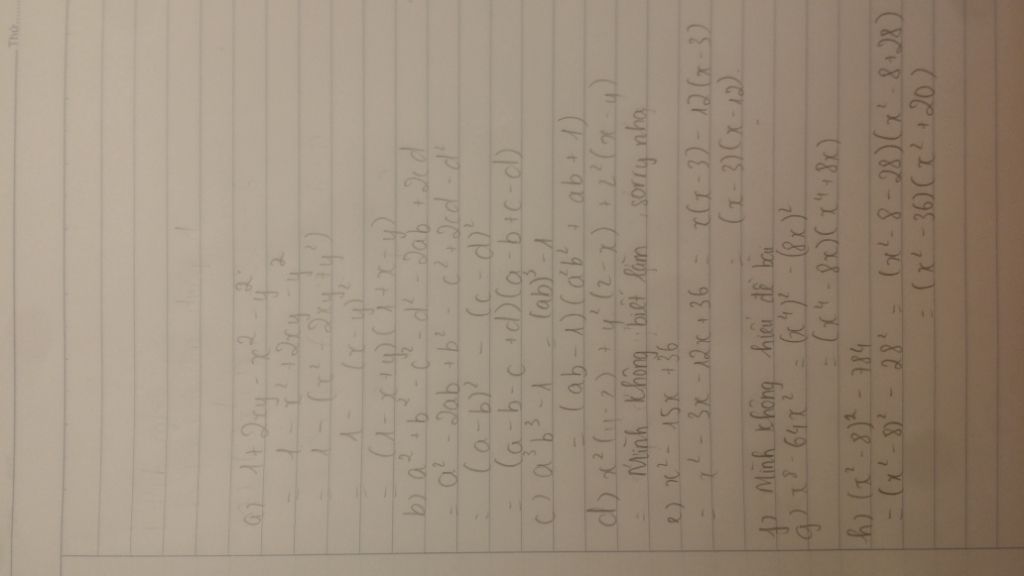 Thứ
a) 1 + 2xy - x² - y²
= 1 - x² + 2xy - y²
= 1 - (x² - 2xy + y²)
1 - (x - y)²
= (1 - x + y)(1 + x - y)
b) a² + b² - c² - d² - 2ab + 2cd
= a² - 2ab + b² - c² + 2cd - d²
= (a - b)² - (c - d)²
= (a - b - c + d)(a - b + c - d)
c) a³b³ - 1 = (ab)³ - 1
= (ab - 1)(a²b² + ab + 1)
d) x²(y - z) + y²(z - x) + z²(x - y)
= Mình không biết làm, sorry nha
e) x² - 15x + 36
= x² - 3x - 12x + 36 = x(x - 3) - 12(x - 3)
= (x - 3)(x - 12)
f) Mình không hiểu đề bài
g) x⁸ - 64x² = (x⁴)² - (8x)²
= (x⁴ - 8x)(x⁴ + 8x)
h) (x² - 8)² - 784
= (x² - 8)² - 28² = (x² - 8 - 28)(x² - 8 + 28)
= (x² - 36)(x² + 20)